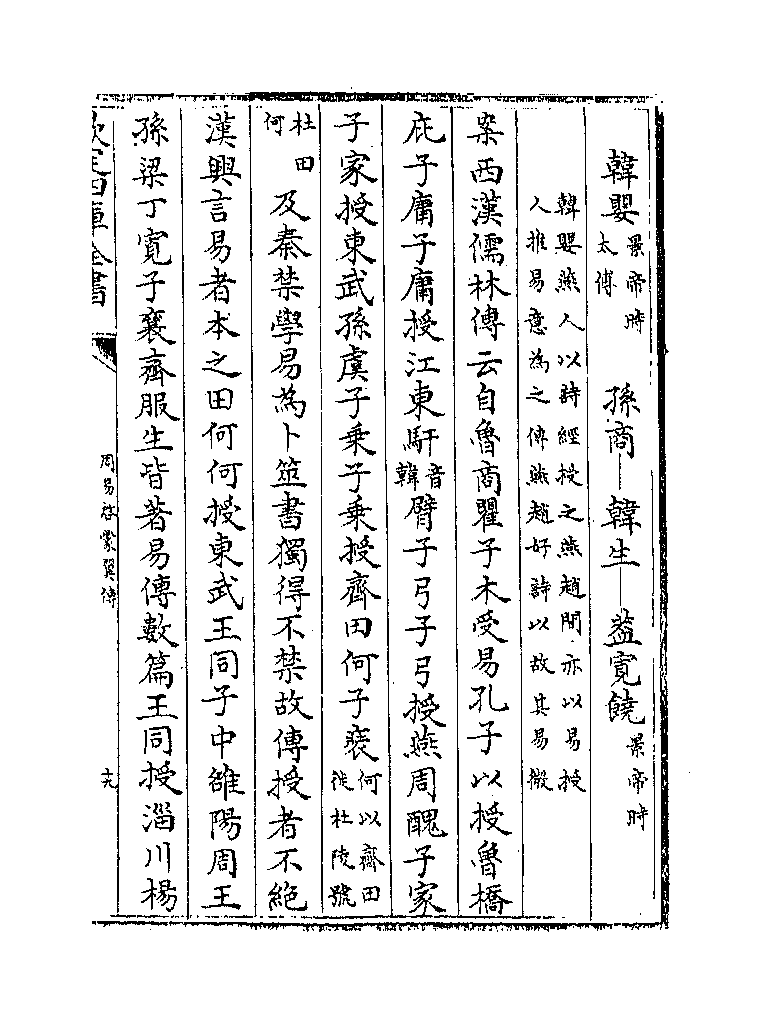 韓嬰景帝時太傅　孫商｜韓生｜葢寛饒景帝時
韓嬰燕人以詩經授之燕趙間亦以易授
人推易意為之傳燕趙好詩以故其易微
案西漢儒林傳云自魯商瞿子木受易孔子以授魯橋
庇子庸子庸授江東馯音韓臂子弓子弓授燕周醜子家
子家授東武孫虞子乘子乘授齊田何子裝何以齊田徙杜陵號
杜田何及秦禁學易為卜筮書獨得不禁故傳授者不絶
漢興言易者本之田何何授東武王同子中雒陽周王
孫梁丁寛子襄齊服生皆著易傳數篇王同授淄川楊
欽定四庫全書
周易啓蒙翼傳
十九